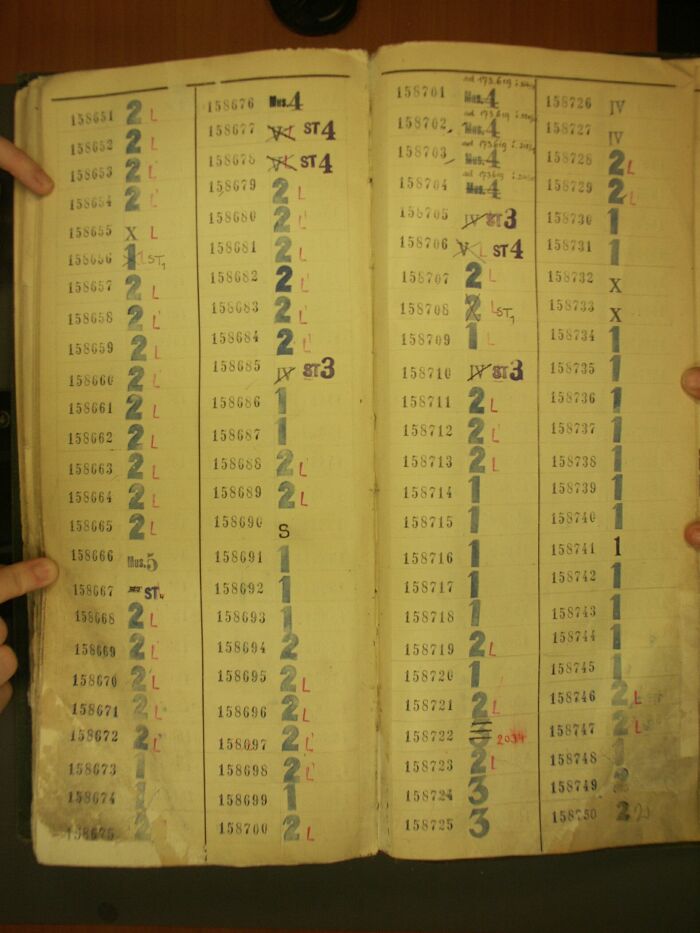 158651 2 L
158652 2 L
158653 2 L
158654 2 L
158655 X L
158656 1 L ST1
158657 2 L
158658 2 L
158659 2 L
158660 2 L
158661 2 L
158662 2 L
158663 2 L
158664 2 L
158665 2 L
158666 Mus.5
158667 ST
158668 2 L
158669 2 L
158670 2 L
158671 2 L
158672 2 L
158673 1
158674 1
158675 2
158676 Mus.4
158677 V L ST4
158678 V L ST4
158679 2 L
158680 2 L
158681 2 L
158682 2 L
158683 2 L
158684 2 L
158685 IV ST3
158686 1
158687 1
158688 2 L
158689 2 L
158690 S
158691 1
158692 1
158693 1
158694 2
158695 2 L
158696 2 L
158697 2 L
158698 2 L
158699 1
158700 2 L
158701 Mus.4
158702 Mus.4
158703 Mus.4
158704 Mus.4
158705 IV ST3
158706 V L ST4
158707 2 L
158708 2 L ST1
158709 1 L
158710 IV ST3
158711 2 L
158712 2 L
158713 2 L
158714 1
158715 1
158716 1
158717 1
158718 1
158719 2 L
158720 1
158721 2 L
158722 3
158723 2 L
158724 3
158725 3
158726 IV
158727 IV
158728 2 L
158729 2 L
158730 1
158731 1
158732 X
158733 X
158734 1
158735 1
158736 1
158737 1
158738 1
158739 1
158740 1
158741 1
158742 1
158743 1
158744 1
158745 1
158746 2 L
158747 2 L
158748 1
158749 2
158750 2